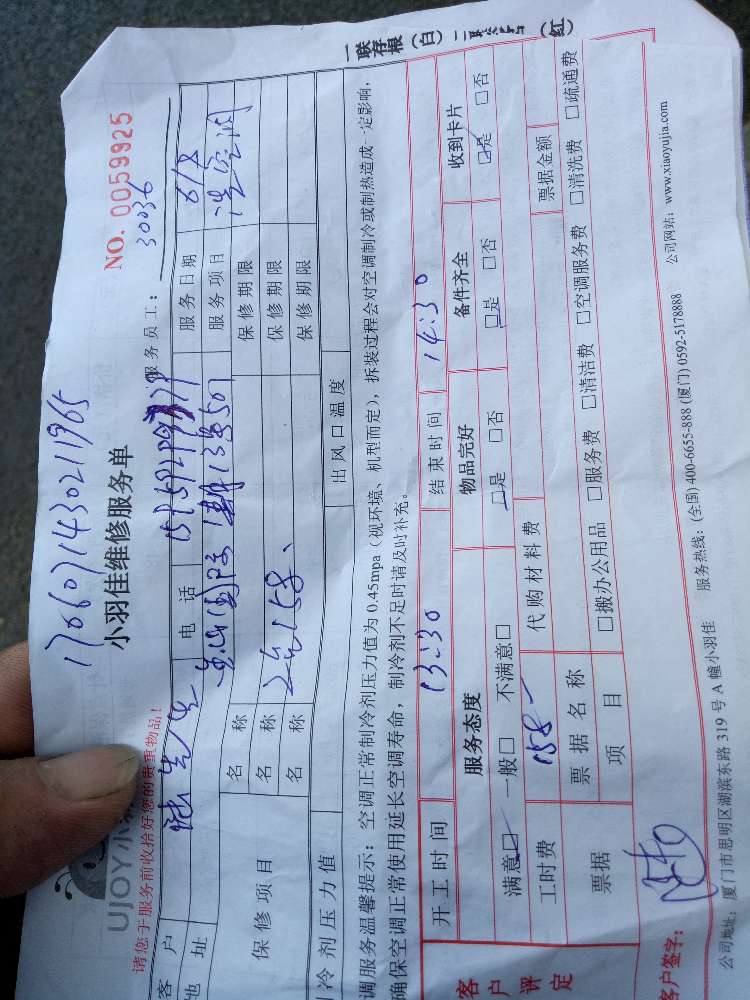 一联存根（白）二联
（红）
170607143021965
UJOY小羽
小羽佳维修服务单
NO. 0059925
请您于服务前收拾好您的贵重物品！
服务员工：30036
客户
电话
服务日期 6/8
地址
服务项目 洗空调
保修项目
名称
保修期限
名称 2台158、
保修期限
名称
保修期限
冷剂压力值
出风口温度
调服务温馨提示：空调正常制冷剂压力值为 0.45mpa（视环境、机型而定），拆装过程会对空调制冷或制热造成一定影响，
确保空调正常使用延长空调寿命，制冷剂不足时请及时补充。
客户评定
开工时间 13:30 结束时间 14:30
服务态度 物品完好 备件齐全 收到卡片
满意□ 一般□ 不满意□ □是 □否 □是 □否 □是 □否
工时费 158 代购材料费
票据 票据名称 票据金额
项目 □搬办公用品 □服务费 □清洁费 □空调服务费 □清洗费 □疏通费
客户签字：
公司地址：厦门市思明区湖滨东路 319 号 A 幢小羽佳 服务热线：(全国) 400-6655-888 (厦门) 0592-5178888 公司网站：www.xiaoyujia.com